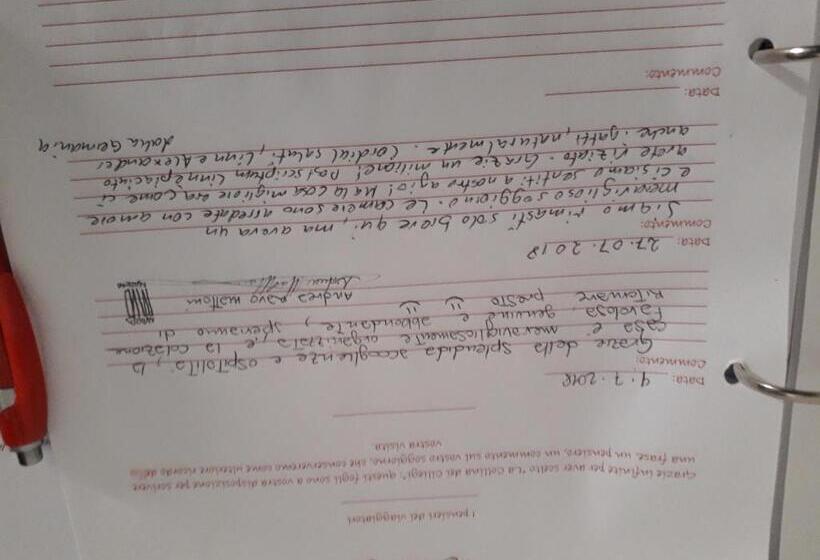 I pensieri dei viaggiatori
Grazie infinite per aver scelto "La collina dei ciliegi", questi fogli sono a vostra disposizione per scrivere
una frase, un pensiero, un commento sul vostro soggiorno, che conserveremo come ulteriore ricordo della
vostra visita.
Data: 4.7.2018
Commento:
Grazie della splendida accoglienze e ospitalità, la
casa è meravigliosamente organizzata, e la colazione
favolosa, genuine e abbondante, speriamo di
ritornare presto
Andrea
Data: 27.07.2018
Commento:
Siamo rimasti solo breve qui, ma avera un
meraviglioso soggiorno. Le camere sono arredate con amore
e ci siamo sentiti a nostro agio! Ma la cosa migliore era come ci
avete viziato. Grazie un milione! Postscriptum Linn è piaciuto
anche i gatti, naturalmente. Cordial saluti, Linn e Alexander
dalla Germania
Data:
Commento: